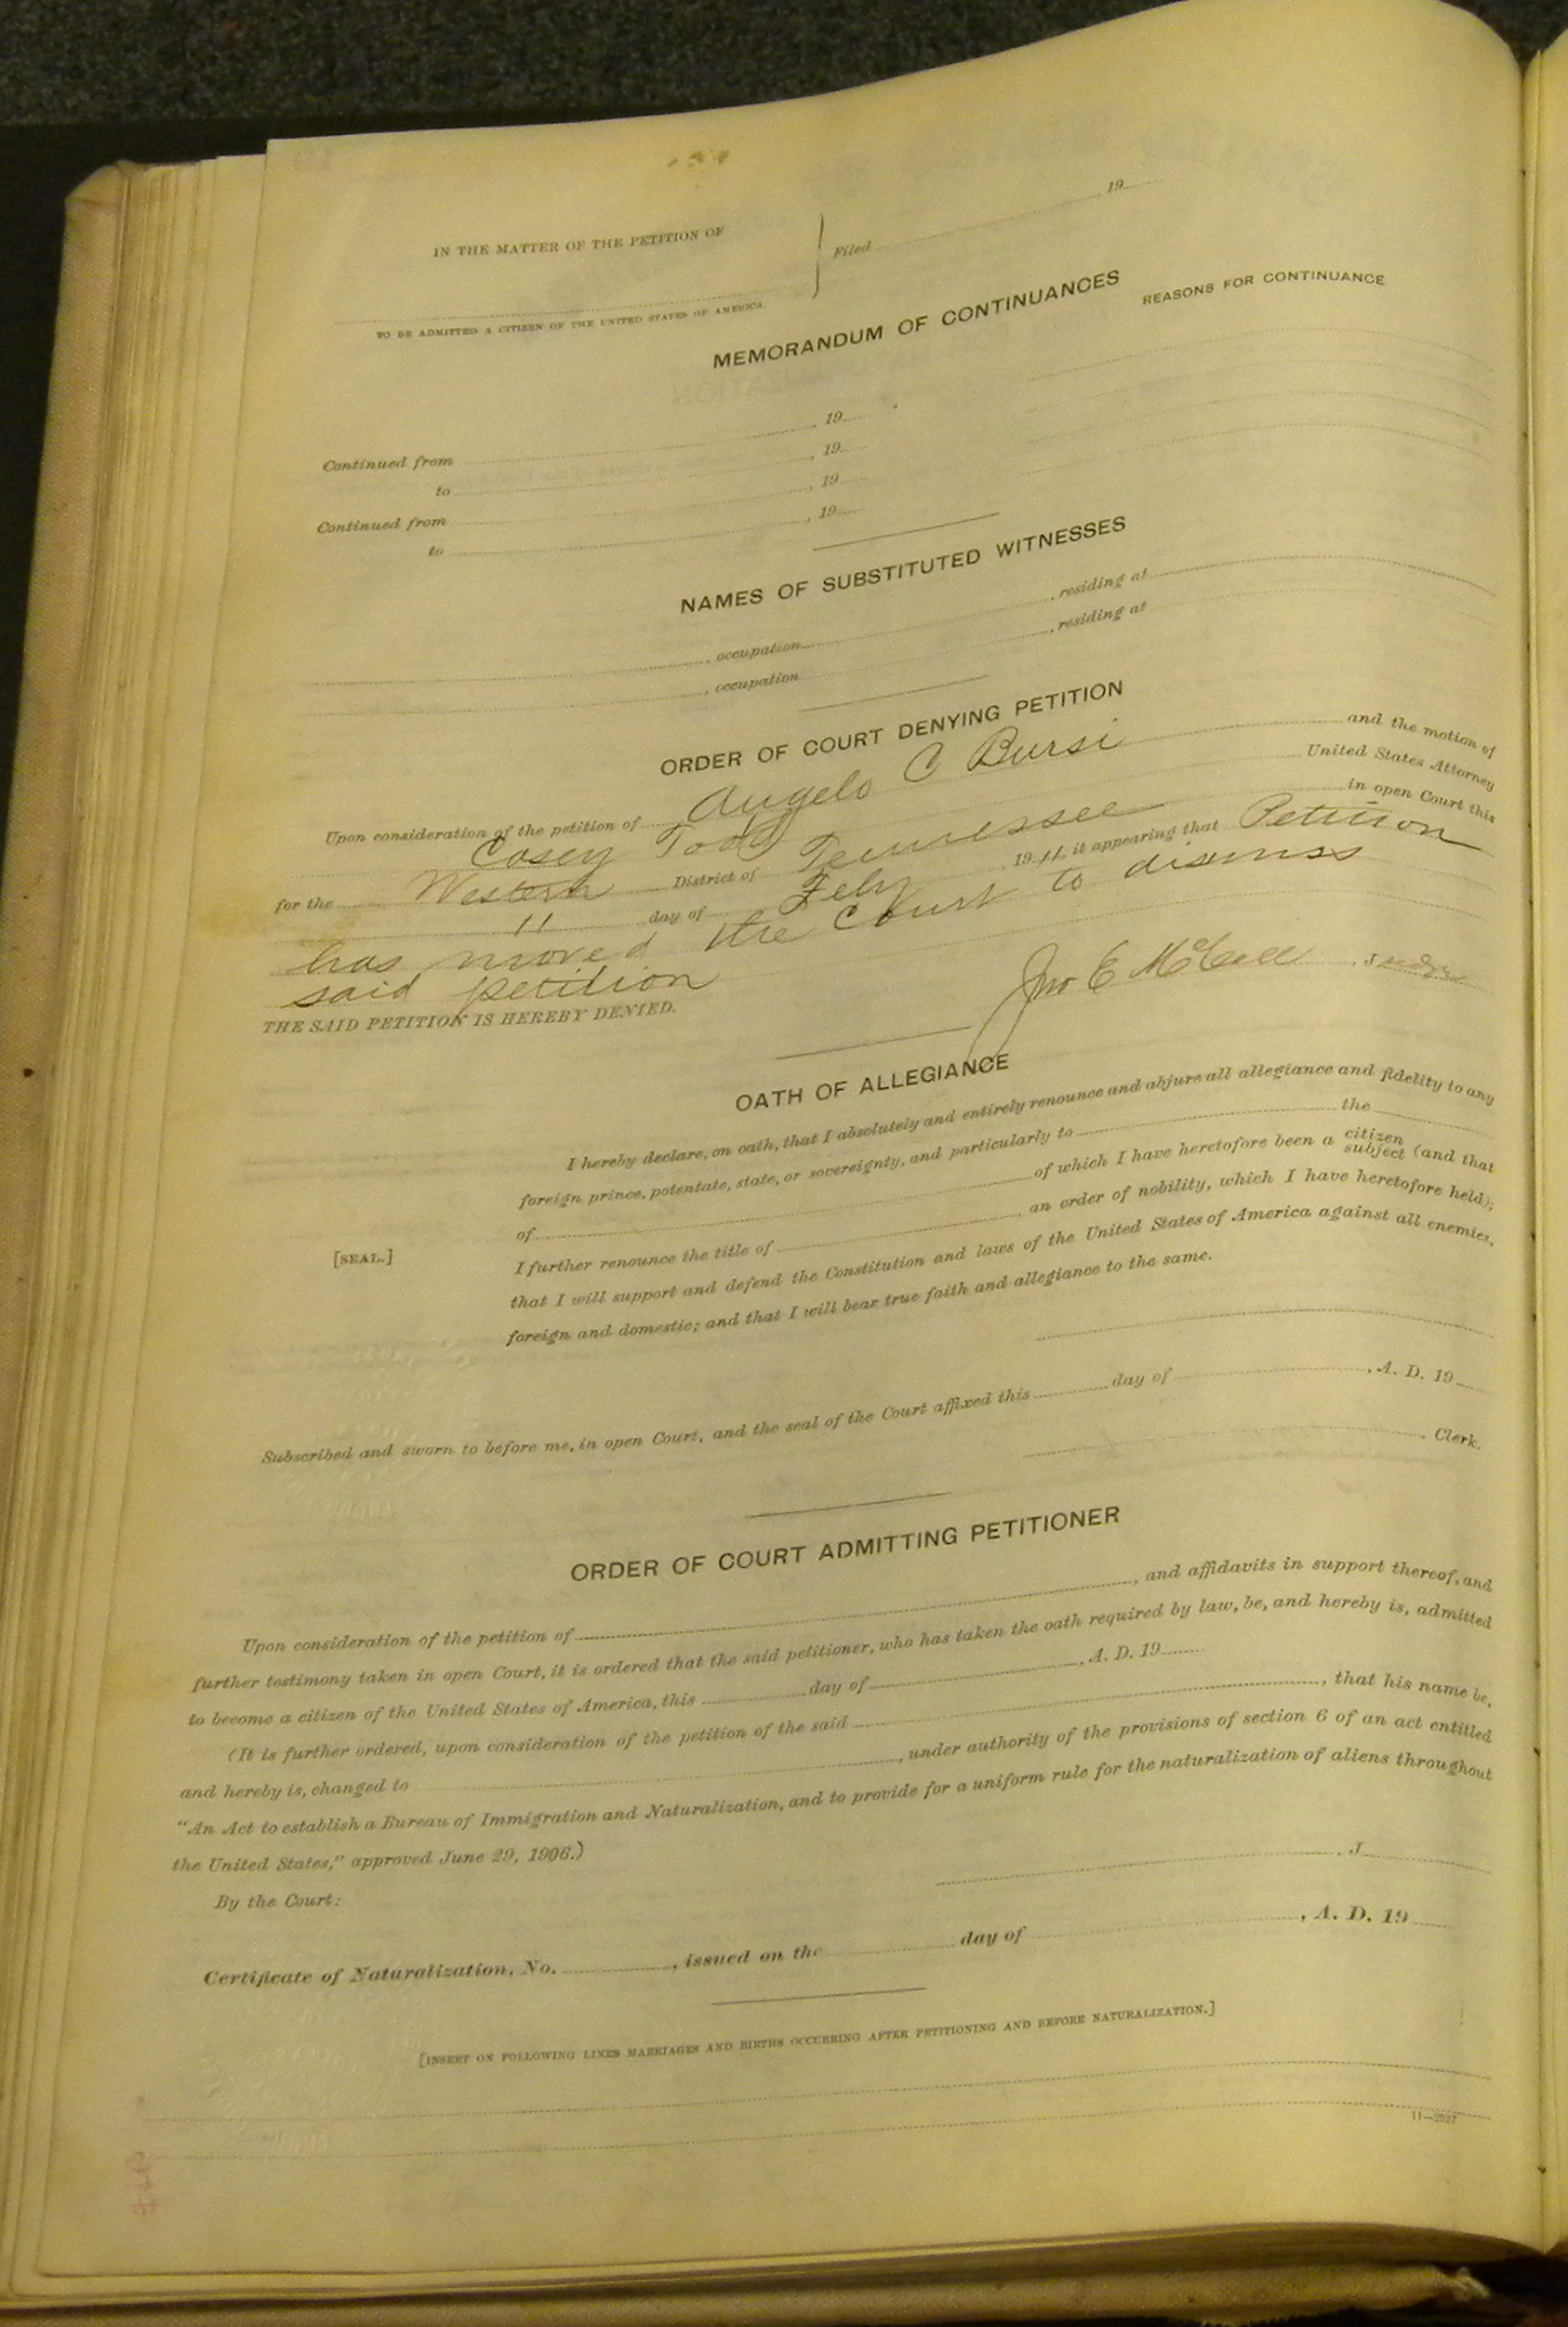 IN THE MATTER OF THE PETITION OF
Filed , 19
TO BE ADMITTED A CITIZEN OF THE UNITED STATES OF AMERICA.
MEMORANDUM OF CONTINUANCES
REASONS FOR CONTINUANCE
Continued from , 19
to , 19
Continued from , 19
to , 19
NAMES OF SUBSTITUTED WITNESSES
, occupation , residing at
, occupation , residing at
ORDER OF COURT DENYING PETITION
Upon consideration of the petition of Angelo C Bursi and the motion of
Casey Todd United States Attorney
for the Western District of Tennessee in open Court this
11 day of Feby 1911, it appearing that Petition
has moved the Court to dismiss
said petition
THE SAID PETITION IS HEREBY DENIED.
Jno E McCall , Judge
OATH OF ALLEGIANCE
I hereby declare, on oath, that I absolutely and entirely renounce and abjure all allegiance and fidelity to any
foreign prince, potentate, state, or sovereignty, and particularly to the
of of which I have heretofore been a citizen subject (and that
I further renounce the title of an order of nobility, which I have heretofore held);
that I will support and defend the Constitution and laws of the United States of America against all enemies,
foreign and domestic; and that I will bear true faith and allegiance to the same.
[SEAL.]
Subscribed and sworn to before me, in open Court, and the seal of the Court affixed this day of , A. D. 19
, Clerk.
ORDER OF COURT ADMITTING PETITIONER
Upon consideration of the petition of , and affidavits in support thereof, and
further testimony taken in open Court, it is ordered that the said petitioner, who has taken the oath required by law, be, and hereby is, admitted
to become a citizen of the United States of America, this day of , A. D. 19
(It is further ordered, upon consideration of the petition of the said , that his name be,
and hereby is, changed to , under authority of the provisions of section 6 of an act entitled
"An Act to establish a Bureau of Immigration and Naturalization, and to provide for a uniform rule for the naturalization of aliens throughout
the United States," approved June 29, 1906.)
By the Court:
, J
Certificate of Naturalization, No. , issued on the day of , A. D. 19
[INSERT ON FOLLOWING LINES MARRIAGES AND BIRTHS OCCURRING AFTER PETITIONING AND BEFORE NATURALIZATION.]
11—2527